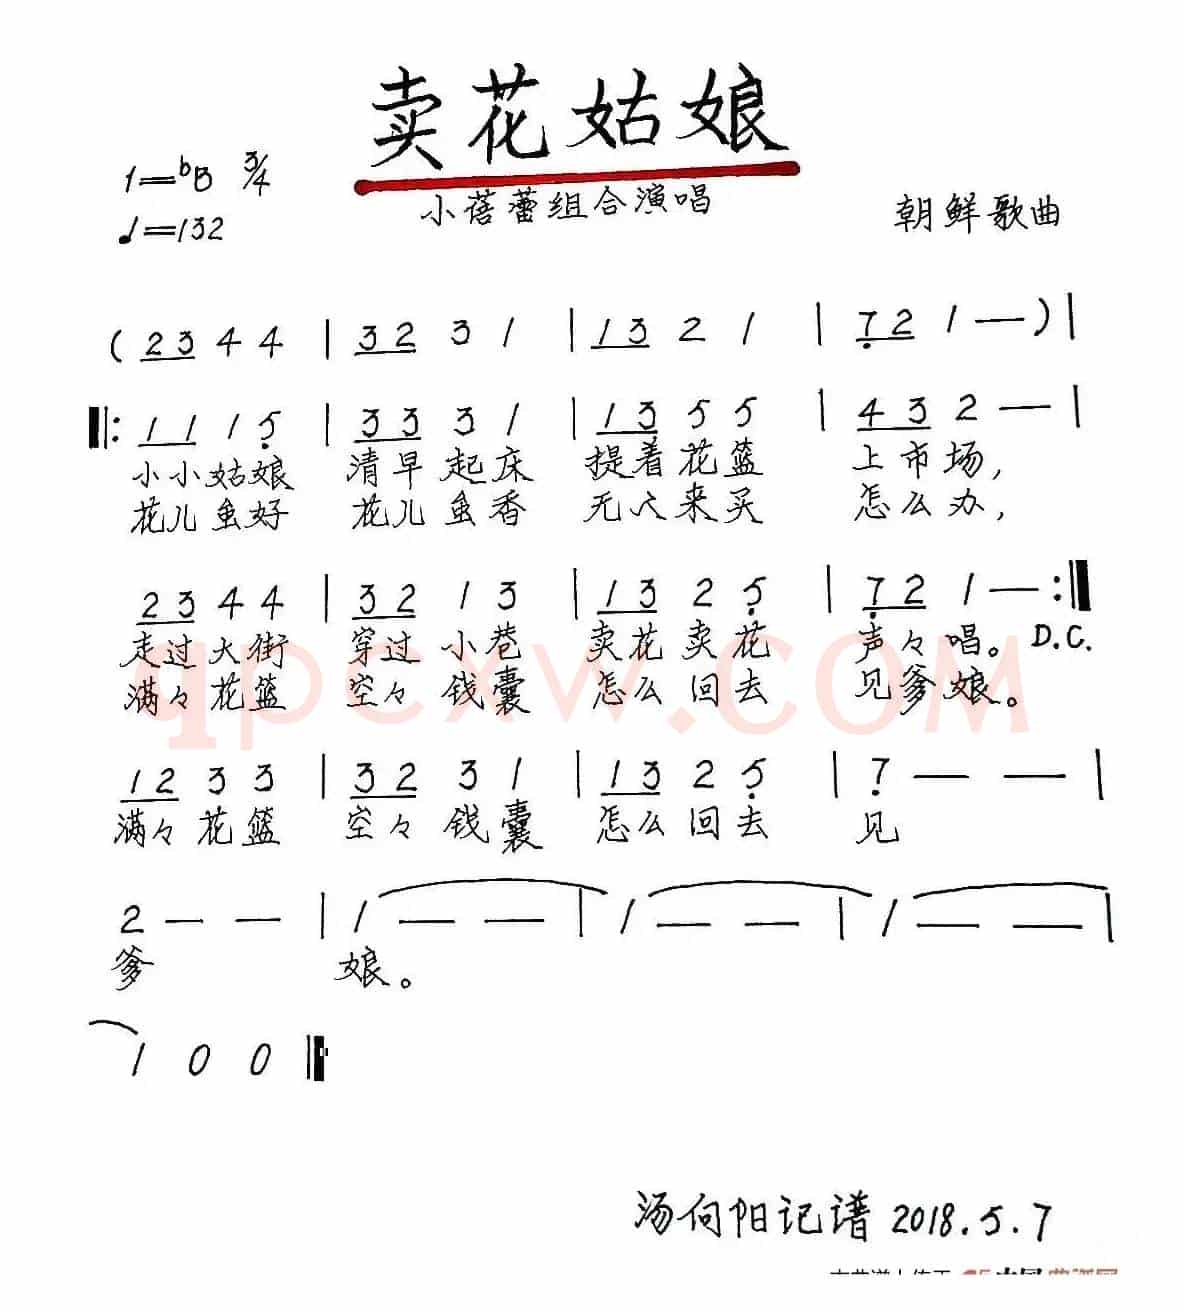 卖花姑娘
1=♭B 3/4
小蓓蕾组合演唱
朝鲜歌曲
♩=132
( 2 3 4 4 | 3 2 3 1 | 1 3 2 1 | 7 2 1 — ) |
‖: 1 1 1 5 | 3 3 3 1 | 1 3 5 5 | 4 3 2 — |
小小姑娘 清早起床 提着花篮 上市场,
花儿虽好 花儿虽香 无人来买 怎么办,
2 3 4 4 | 3 2 1 3 | 1 3 2 5 | 7 2 1 — :‖
走过大街 穿过小巷 卖花卖花 声々唱。 D.C.
满々花篮 空々钱囊 怎么回去 见爹娘。
qpcxw.com
1 2 3 3 | 3 2 3 1 | 1 3 2 5 | 7 — — |
满々花篮 空々钱囊 怎么回去 见
2 — — | 1 — — | 1 — — | 1 — — |
爹 娘。
1 0 0 ‖
汤向阳记谱 2018.5.7